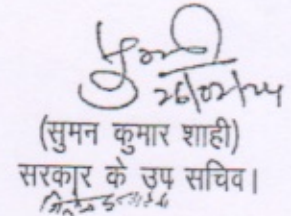 26/02/24
(सुमन कुमार शाही)
सरकार के उप सचिव।